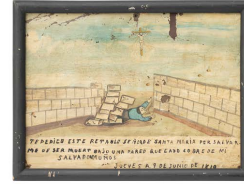 TEDEDICO ESTE RETABLO SEÑORA SANTA MARIA PER SALVAR
ME DE SER MUERT BAJO UNA PARED QUE CAYO SOBRE DE MI
SALVADOR MUÑOS
JUEVES A 9 JUNIO DE 1810